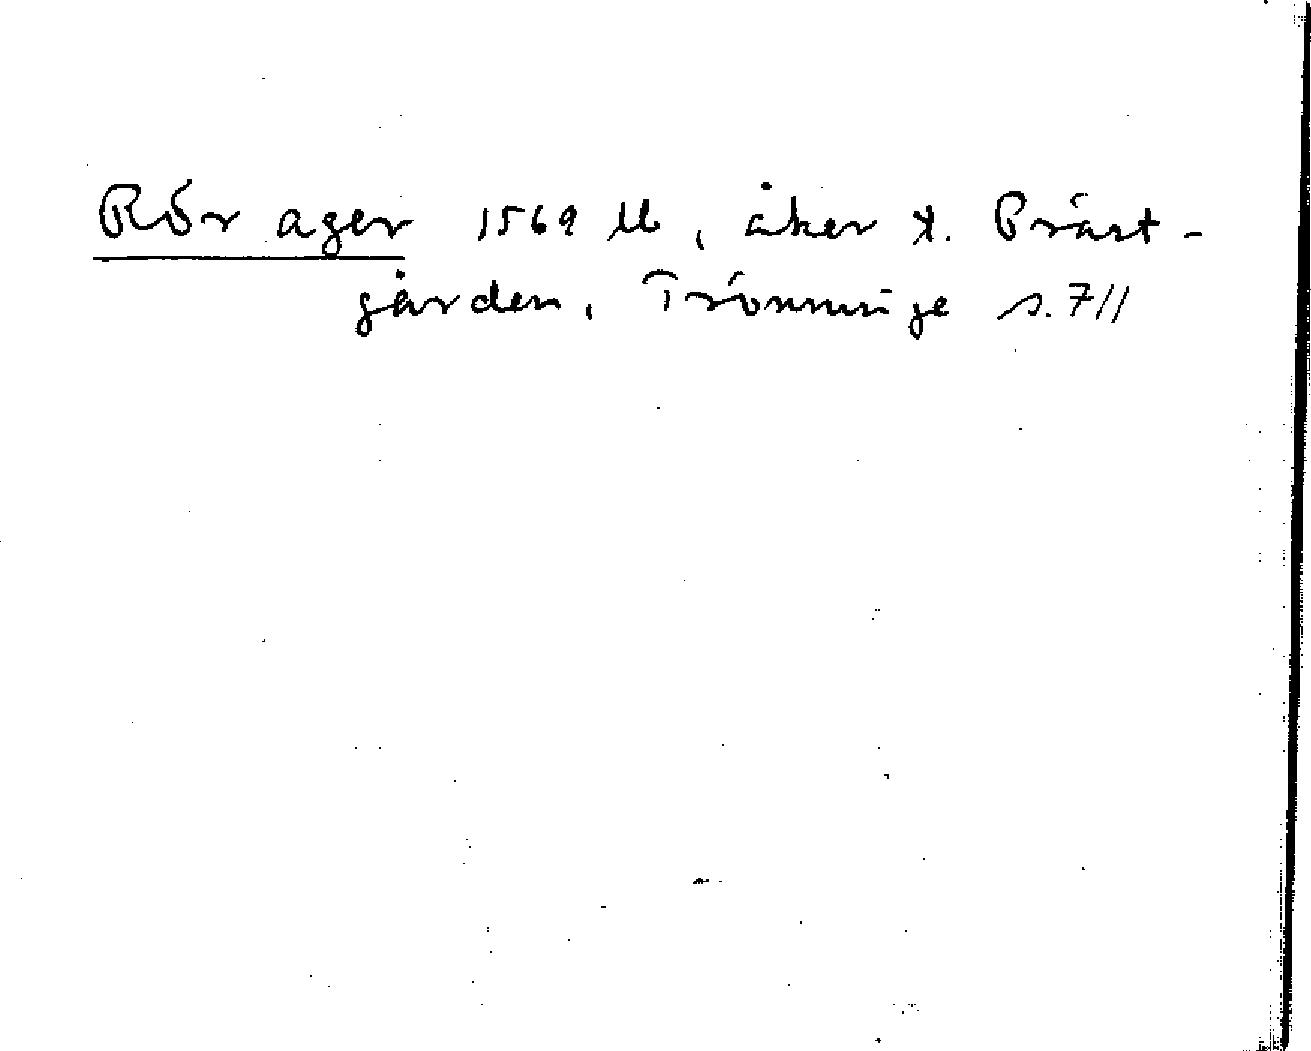 Rör ager 1569 Lb, åker t. Präst-
gården, Trönninge s. 711